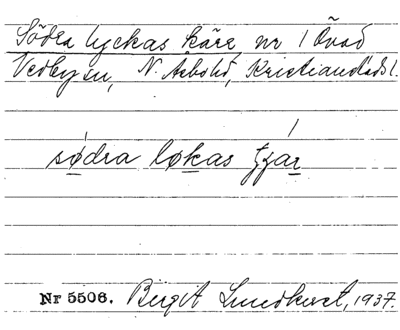 Södra lyckas kärr nr 1 Övad
Vedby sn, N. Åsbohd, Kristianstads l.
södra løkas tjár
Nr 5506. Birgit Lundkvist, 1937.